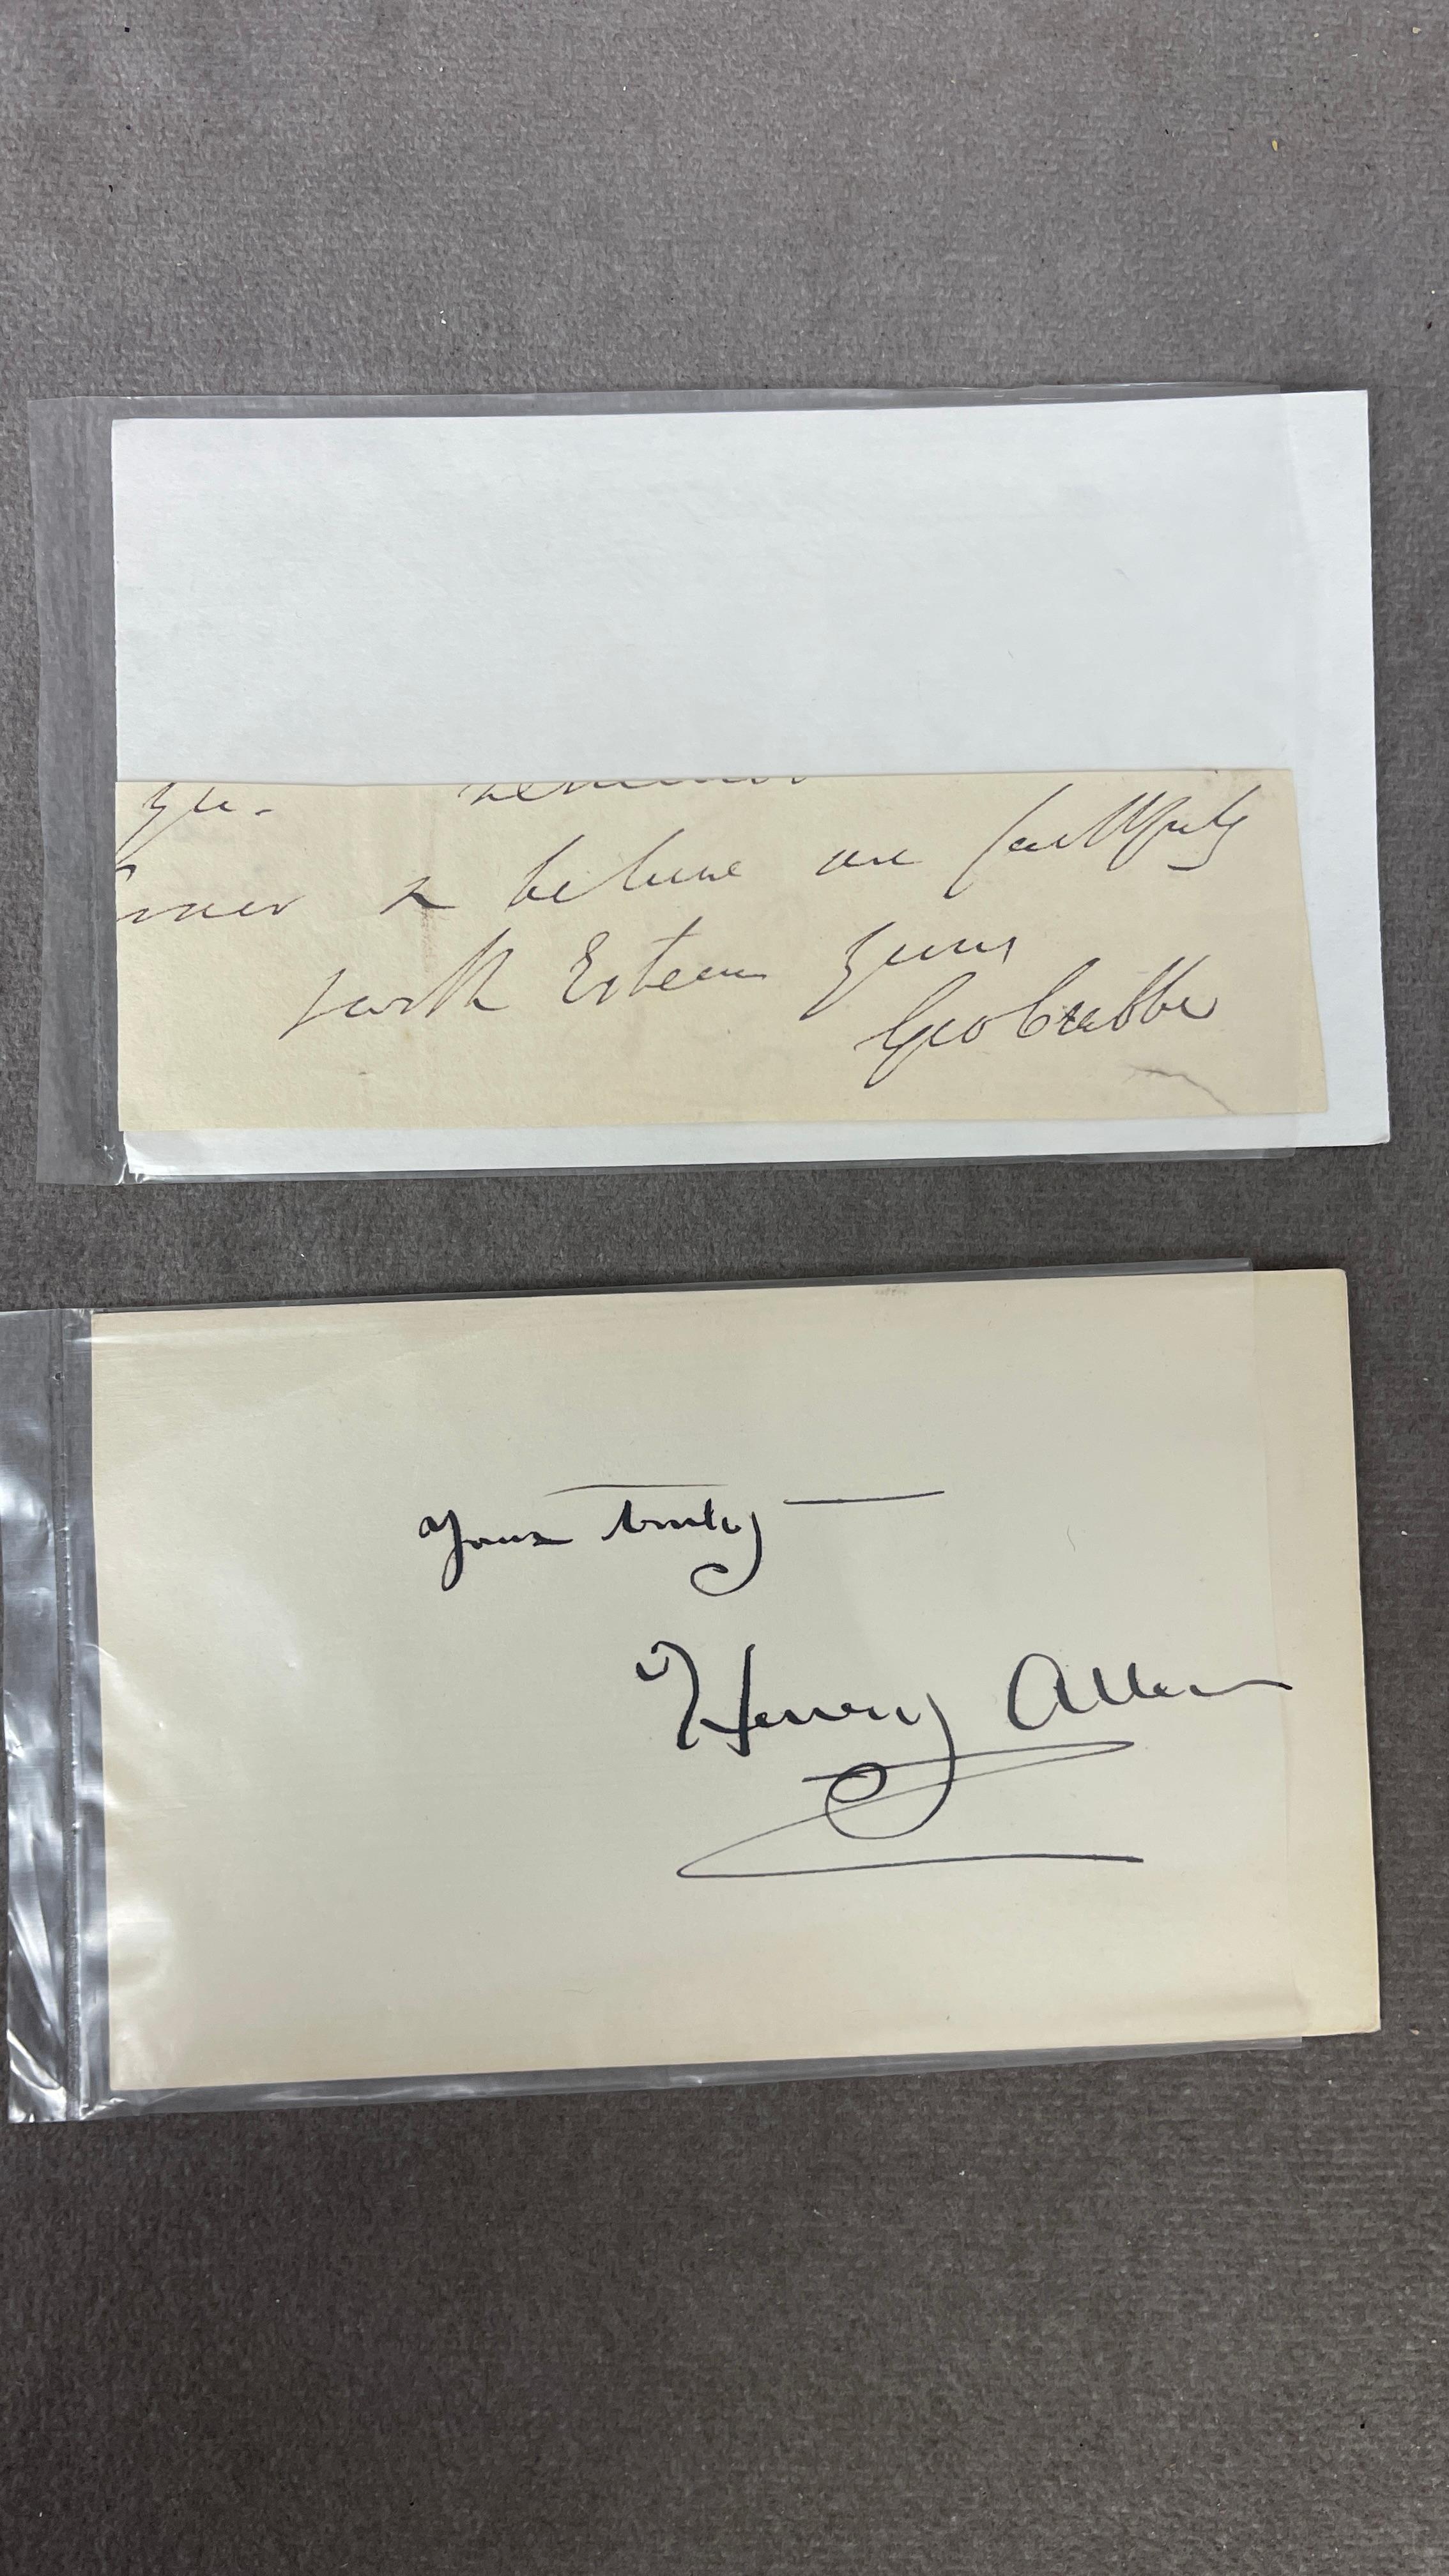 & believe me faithfully
with Esteem yours
Geo Crabbe
Yours truly
Henry Allen